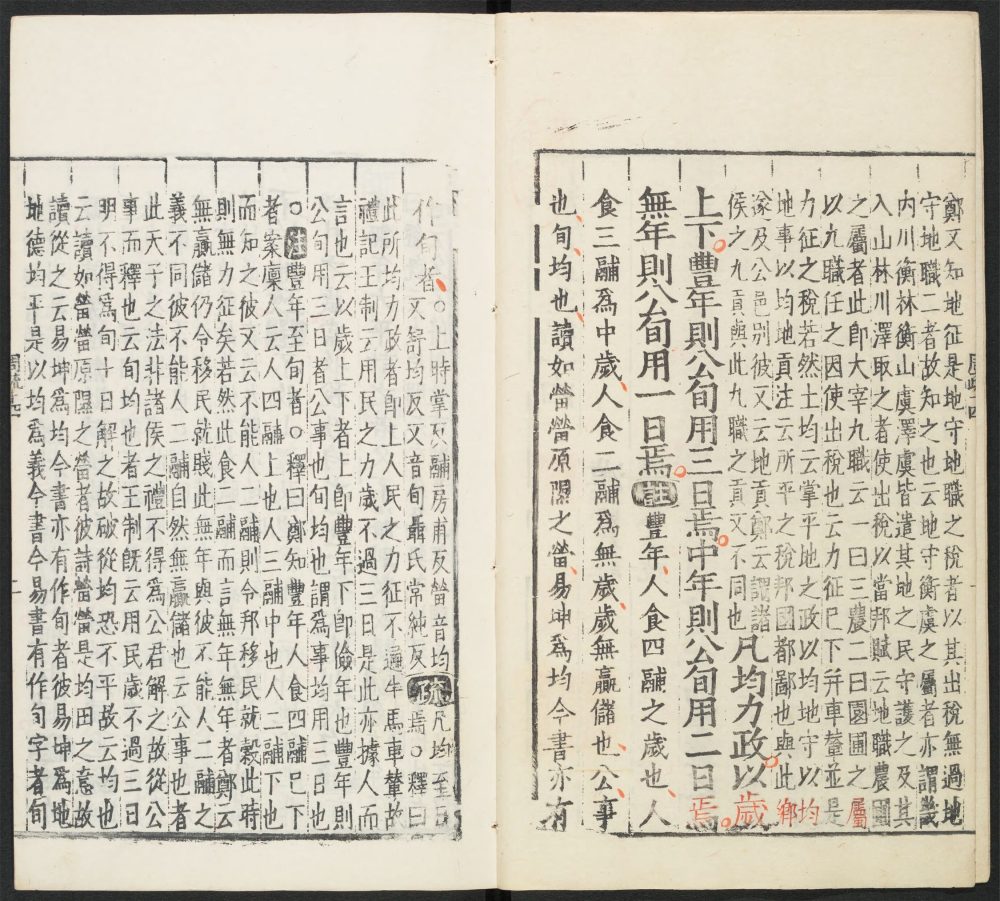 鄭又知地征是地守地職之稅者以其出稅無過地
守地職二者故知之也云地守衡虞之屬者亦謂畿
內川衡林衡山虞澤虞皆遣其地之民守護之及其
入山林川澤取之者使出稅以當邦賦云地職農圃
之屬者此即大宰九職云一曰三農二曰園圃之屬
以九職任之因使出稅也云力征巳下并車輦並是
力征之稅若然土均云掌平地之政以均地守以均
地事以均地貢注云所平之稅邦國都鄙也與此鄉
遂及公邑別彼又云地貢鄭云謂諸
侯之九貢與此九職之貢又不同也
凡均力政以歲
上下豐年則公旬用三日焉中年則公旬用二日焉
無年則公旬用一日焉註豐年人食四鬴之歲也人
食三鬴爲中歲人食二鬴爲無歲歲無贏儲也公事
也旬均也讀如㽦㽦原隰之㽦易坤爲均今書亦有
作旬者○上時掌反鬴房甫反㽦音均
又舒均反又音旬聶氏常純反
疏凡均至日
焉○釋曰
此所均力政者即上人民之力征不通牛馬車輦故
禮記王制云用民之力歲不過三日是此亦據人而
言也云以歲上下者上即豐年下即儉年也豐年則
公旬用三日者公事也旬均也謂爲事均用三日也
○註豐年至旬者○釋曰鄭知豐年人食四鬴巳下
者案廩人云人四鬴上也人三鬴中也人二鬴下也
而知之彼又云不能人二鬴則令邦移民就穀此時
則無力征矣若然此食二鬴而言無年無年者鄭云
無贏儲仍令移民就賤此無年與彼不能人二鬴之
義不同彼不能人二鬴自然無贏儲也云公事也者
此天子之法非諸侯之禮不得爲公君解之故從公
事而釋也云旬均也者王制旣云用民歲不過三日
明不得爲旬十日解之故破從均恐不平故云均也
云讀如㽦㽦原隰之㽦者彼詩㽦㽦是均田之意故
讀從之云易坤爲均今書亦有作旬者彼易坤爲地
地德均平是以均爲義今書今易書有作旬字者旬